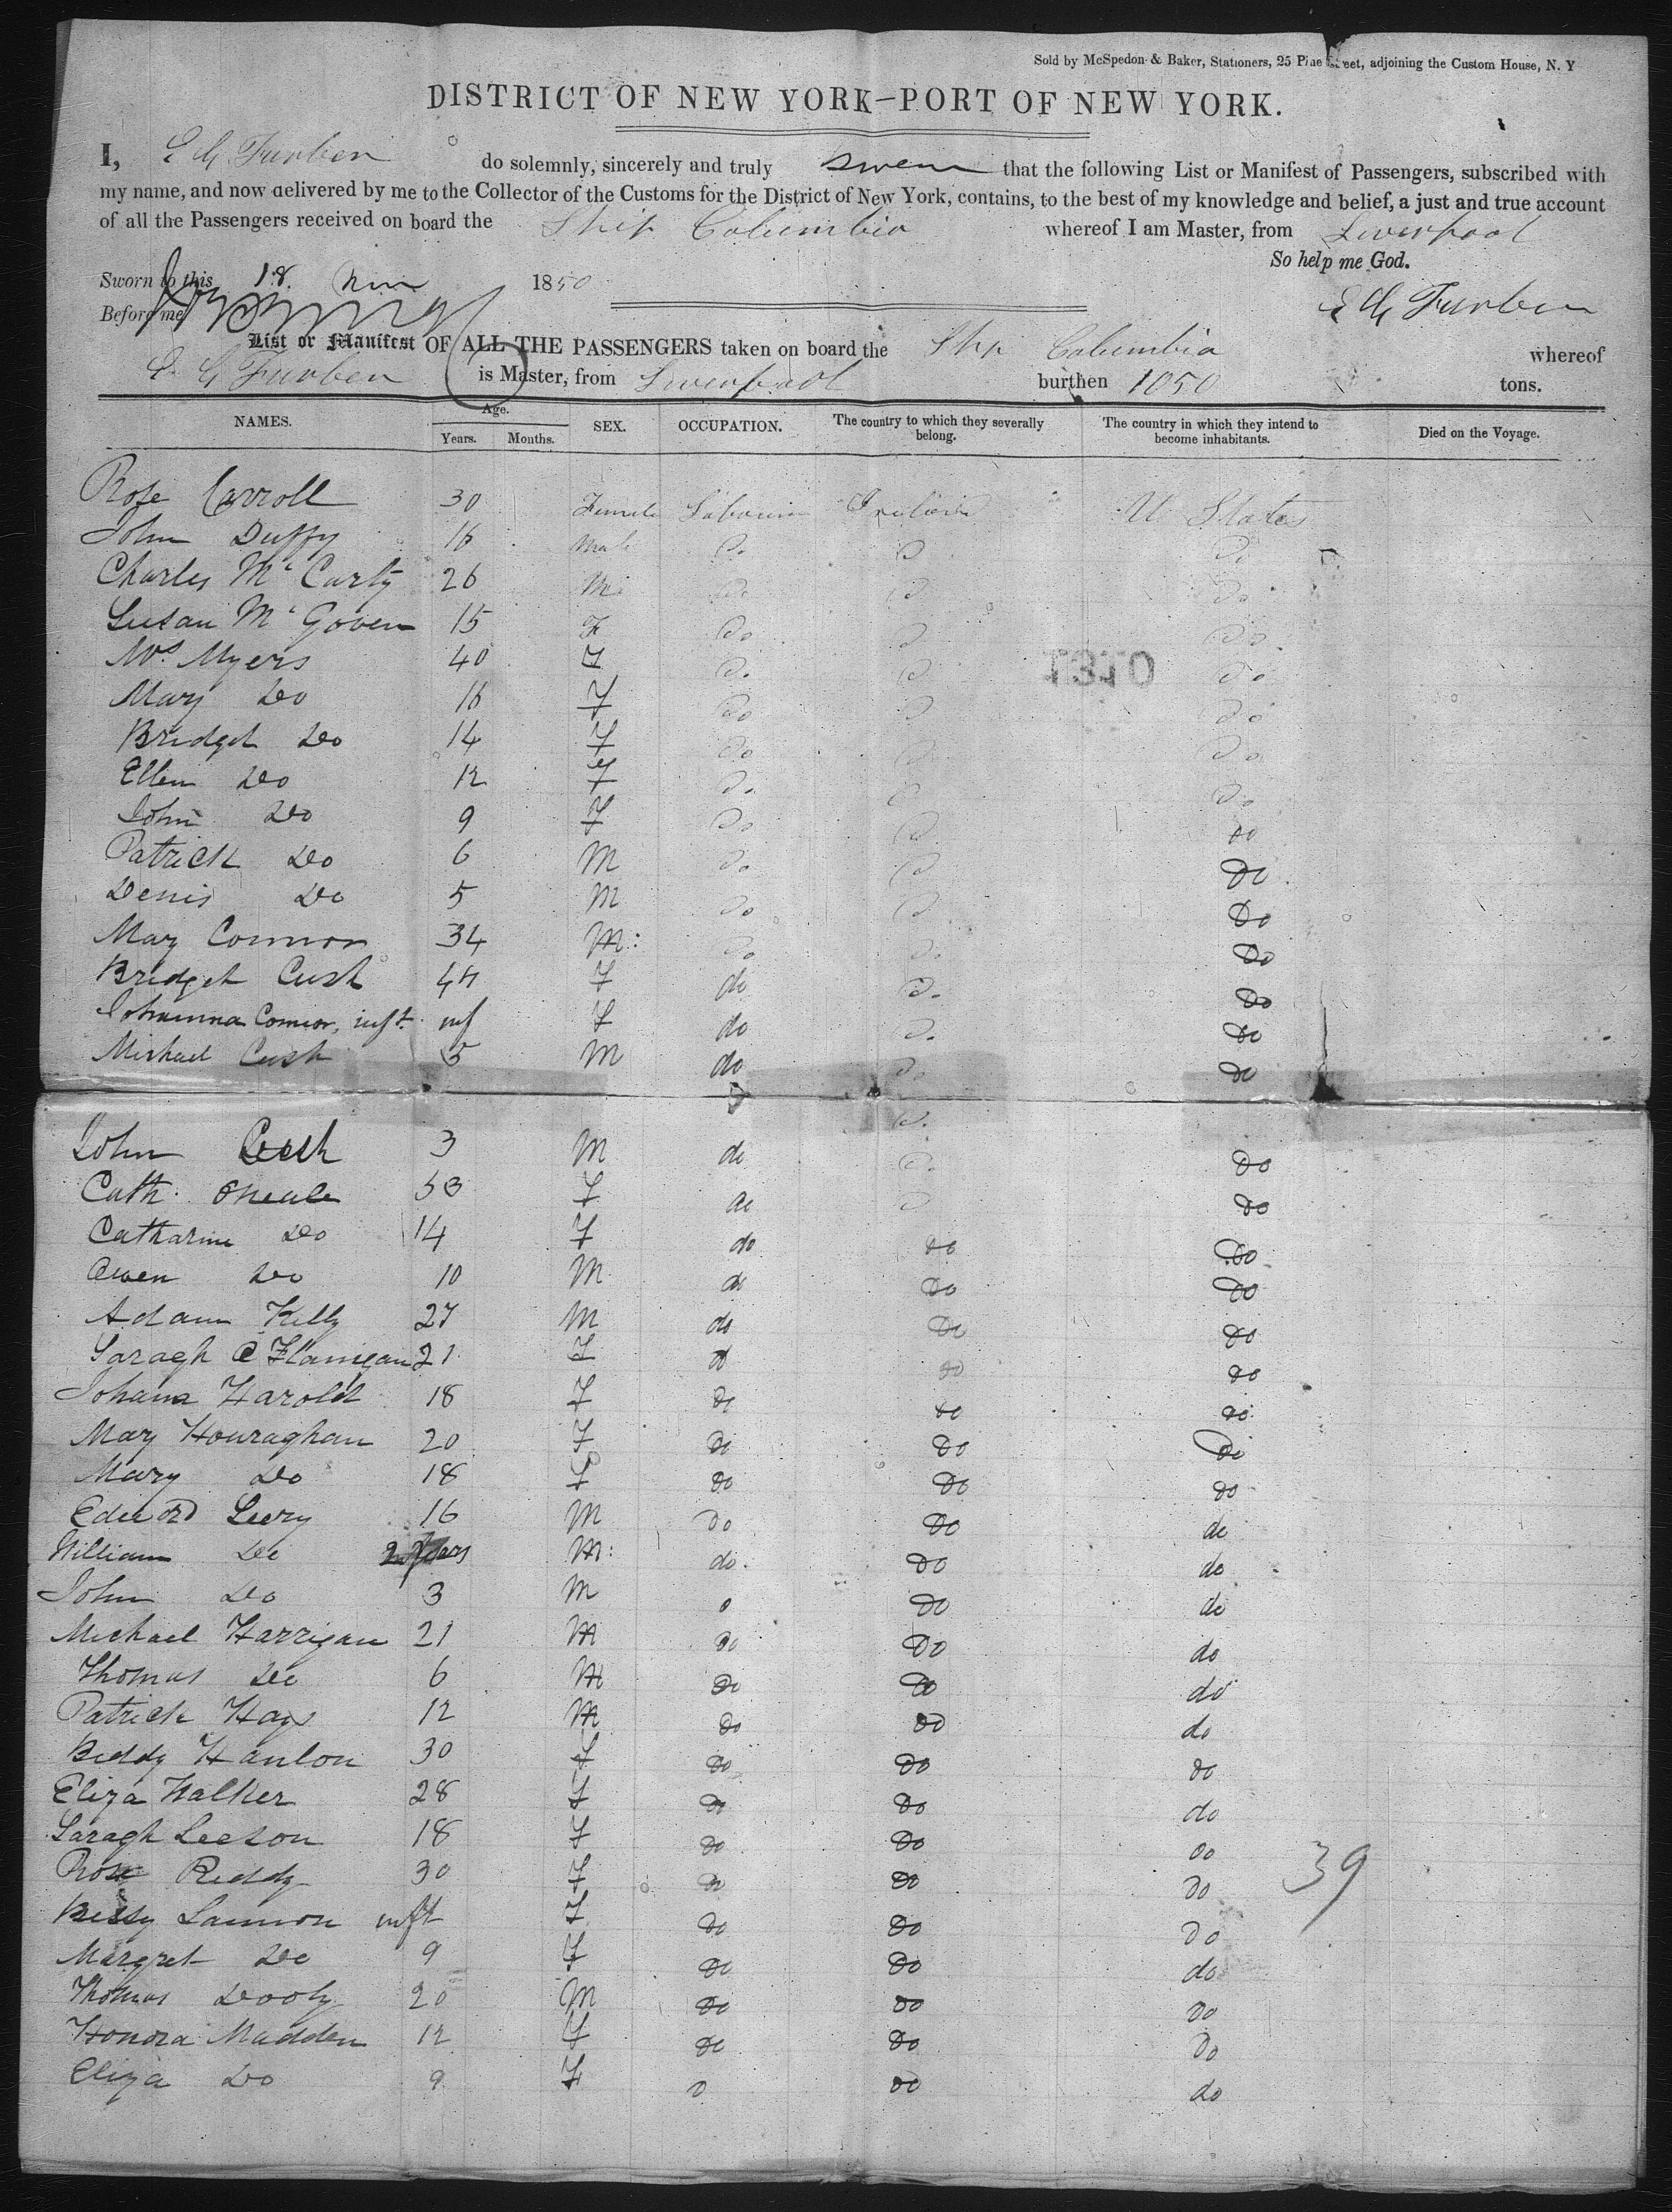 Sold by McSpedon & Baker, Stationers, 25 Pine Street, adjoining the Custom House, N. Y
DISTRICT OF NEW YORK—PORT OF NEW YORK.
I, E G Furber do solemnly, sincerely and truly swear that the following List or Manifest of Passengers, subscribed with
my name, and now delivered by me to the Collector of the Customs for the District of New York, contains, to the best of my knowledge and belief, a just and true account
of all the Passengers received on board the Ship Columbia whereof I am Master, from Liverpool
So help me God.
Sworn to this 18. 1850
Before me
E G Furber
List or Manifest OF ALL THE PASSENGERS taken on board the Ship Columbia whereof
E. G Furber is Master, from Liverpool burthen 1050 tons.
NAMES. Age. Years. Months. SEX. OCCUPATION. The country to which they severally belong. The country in which they intend to become inhabitants. Died on the Voyage.
Rose Carroll 30 Female Labourer Ireland U States
John Duffy 16 Male Do Do Do
Charles McCarty 26 M Do Do Do
Susan McGovern 15 F Do Do Do
Mrs Myers 40 F Do Do Do
1310
Mary Do 16 F Do Do Do
Bridget Do 14 F Do Do Do
Ellen Do 12 F Do Do Do
John Do 9 F Do Do Do
Patrick Do 6 M Do Do Do
Denis Do 5 M Do Do Do
Mary Connor 34 M: Do Do Do
Bridget Cush 44 F do Do Do
Johanna Connor, inft. inf F do Do Do
Michael Cush 5 M do Do Do
John Cush 3 M do Do Do
Cath. Oneale 50 F do Do Do
Catharine Do 14 F do Do Do
Owen Do 10 M do Do Do
Adam Kelly 27 M do Do Do
Saragh Flanigan 21 F do Do Do
Johana Harold 18 F Do Do Do
Mary Houraghan 20 F Do Do Do
Mary Do 18 F Do Do Do
Edward Leery 16 M Do Do do
William Do M: do. Do do
John Do 3 M Do do
Michael Harrigan 21 M Do Do do
Thomas Do 6 M Do Do do
Patrick Hays 12 M Do Do do
Biddy Hanlon 30 F Do Do Do
Eliza Walker 28 F Do Do do
Saragh Leeson 18 F Do Do Do
39
Rose Reddy 30 F Do Do Do
Bessy Lannon inft F Do Do Do
Margret Do 9 F Do Do do
Thomas Dooly 20 M Do Do Do
Honora Madden 12 F Do Do Do
Eliza Do 9 F Do do